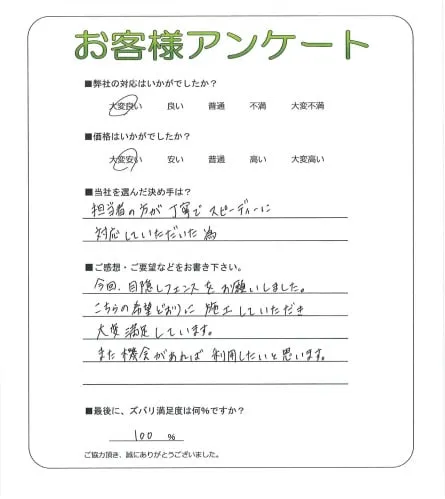 お客様アンケート
■弊社の対応はいかがでしたか？
大変良い 良い 普通 不満 大変不満
■価格はいかがでしたか？
大変安い 安い 普通 高い 大変高い
■当社を選んだ決め手は？
担当者の方が丁寧でスピーディーに
対応していただいた為
■ご感想・ご要望などをお書き下さい。
今回、目隠しフェンスをお願いしました。
こちらの希望どおりに施工していただき
大変満足しています。
また機会があれば利用したいと思います。
■最後に、ズバリ満足度は何%ですか？
100 %
ご協力頂き、誠にありがとうございました。